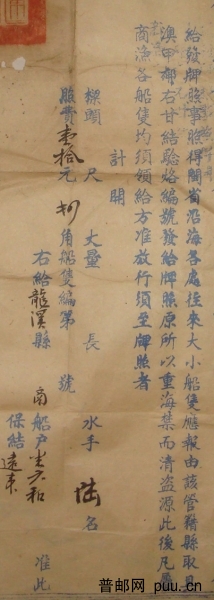 給發牌照事照得閩省沿海各處往來大小船隻應報由該管轄縣取具
澳甲鄰右甘結驗烙編號發給牌照原所以重海禁而清盜源此後凡屬
商漁各船隻均須領給方准放行須至牌照者
計開
樑頭 尺 丈量 長 水手 陸 名
照費壹拾元 角船隻編第 號
右給龍溪縣 商船戶 六和 准此
保結遠東
普邮网 puu.cn